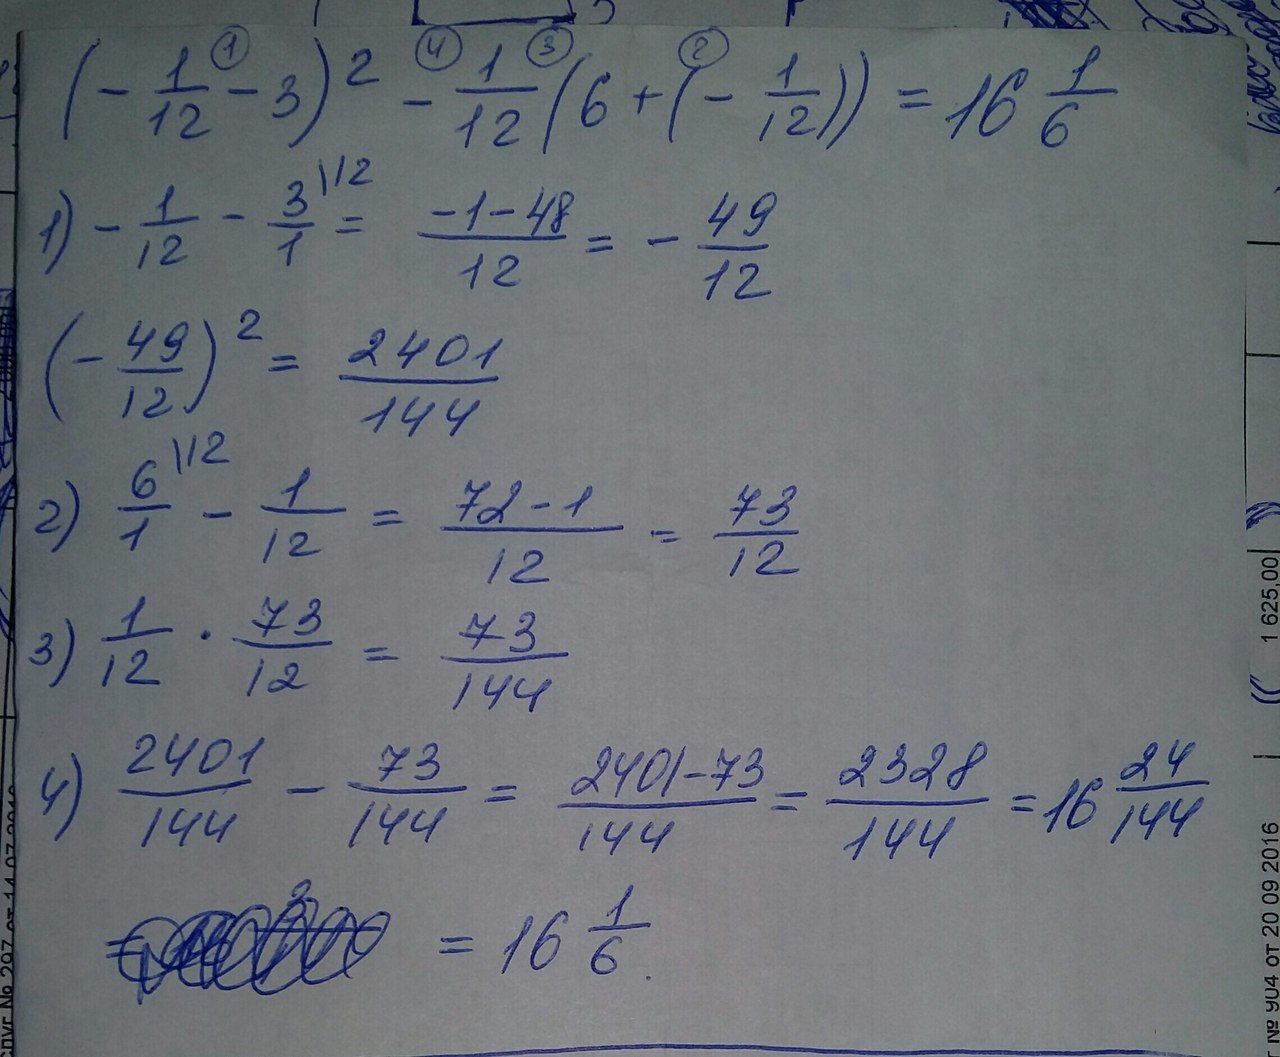 (- 1/12 - 3)² - 1/12 (6 + (- 1/12)) = 16 1/6
① ④ ③ ②
1) - 1/12 - 3/1 \12 = -1-48/12 = - 49/12
(- 49/12)² = 2401/144
2) 6/1 \12 - 1/12 = 72-1/12 = 73/12
3) 1/12 · 73/12 = 73/144
4) 2401/144 - 73/144 = 2401-73/144 = 2328/144 = 16 24/144
= 16 1/6.
1 625,00
№ 904 от 20 09 2016